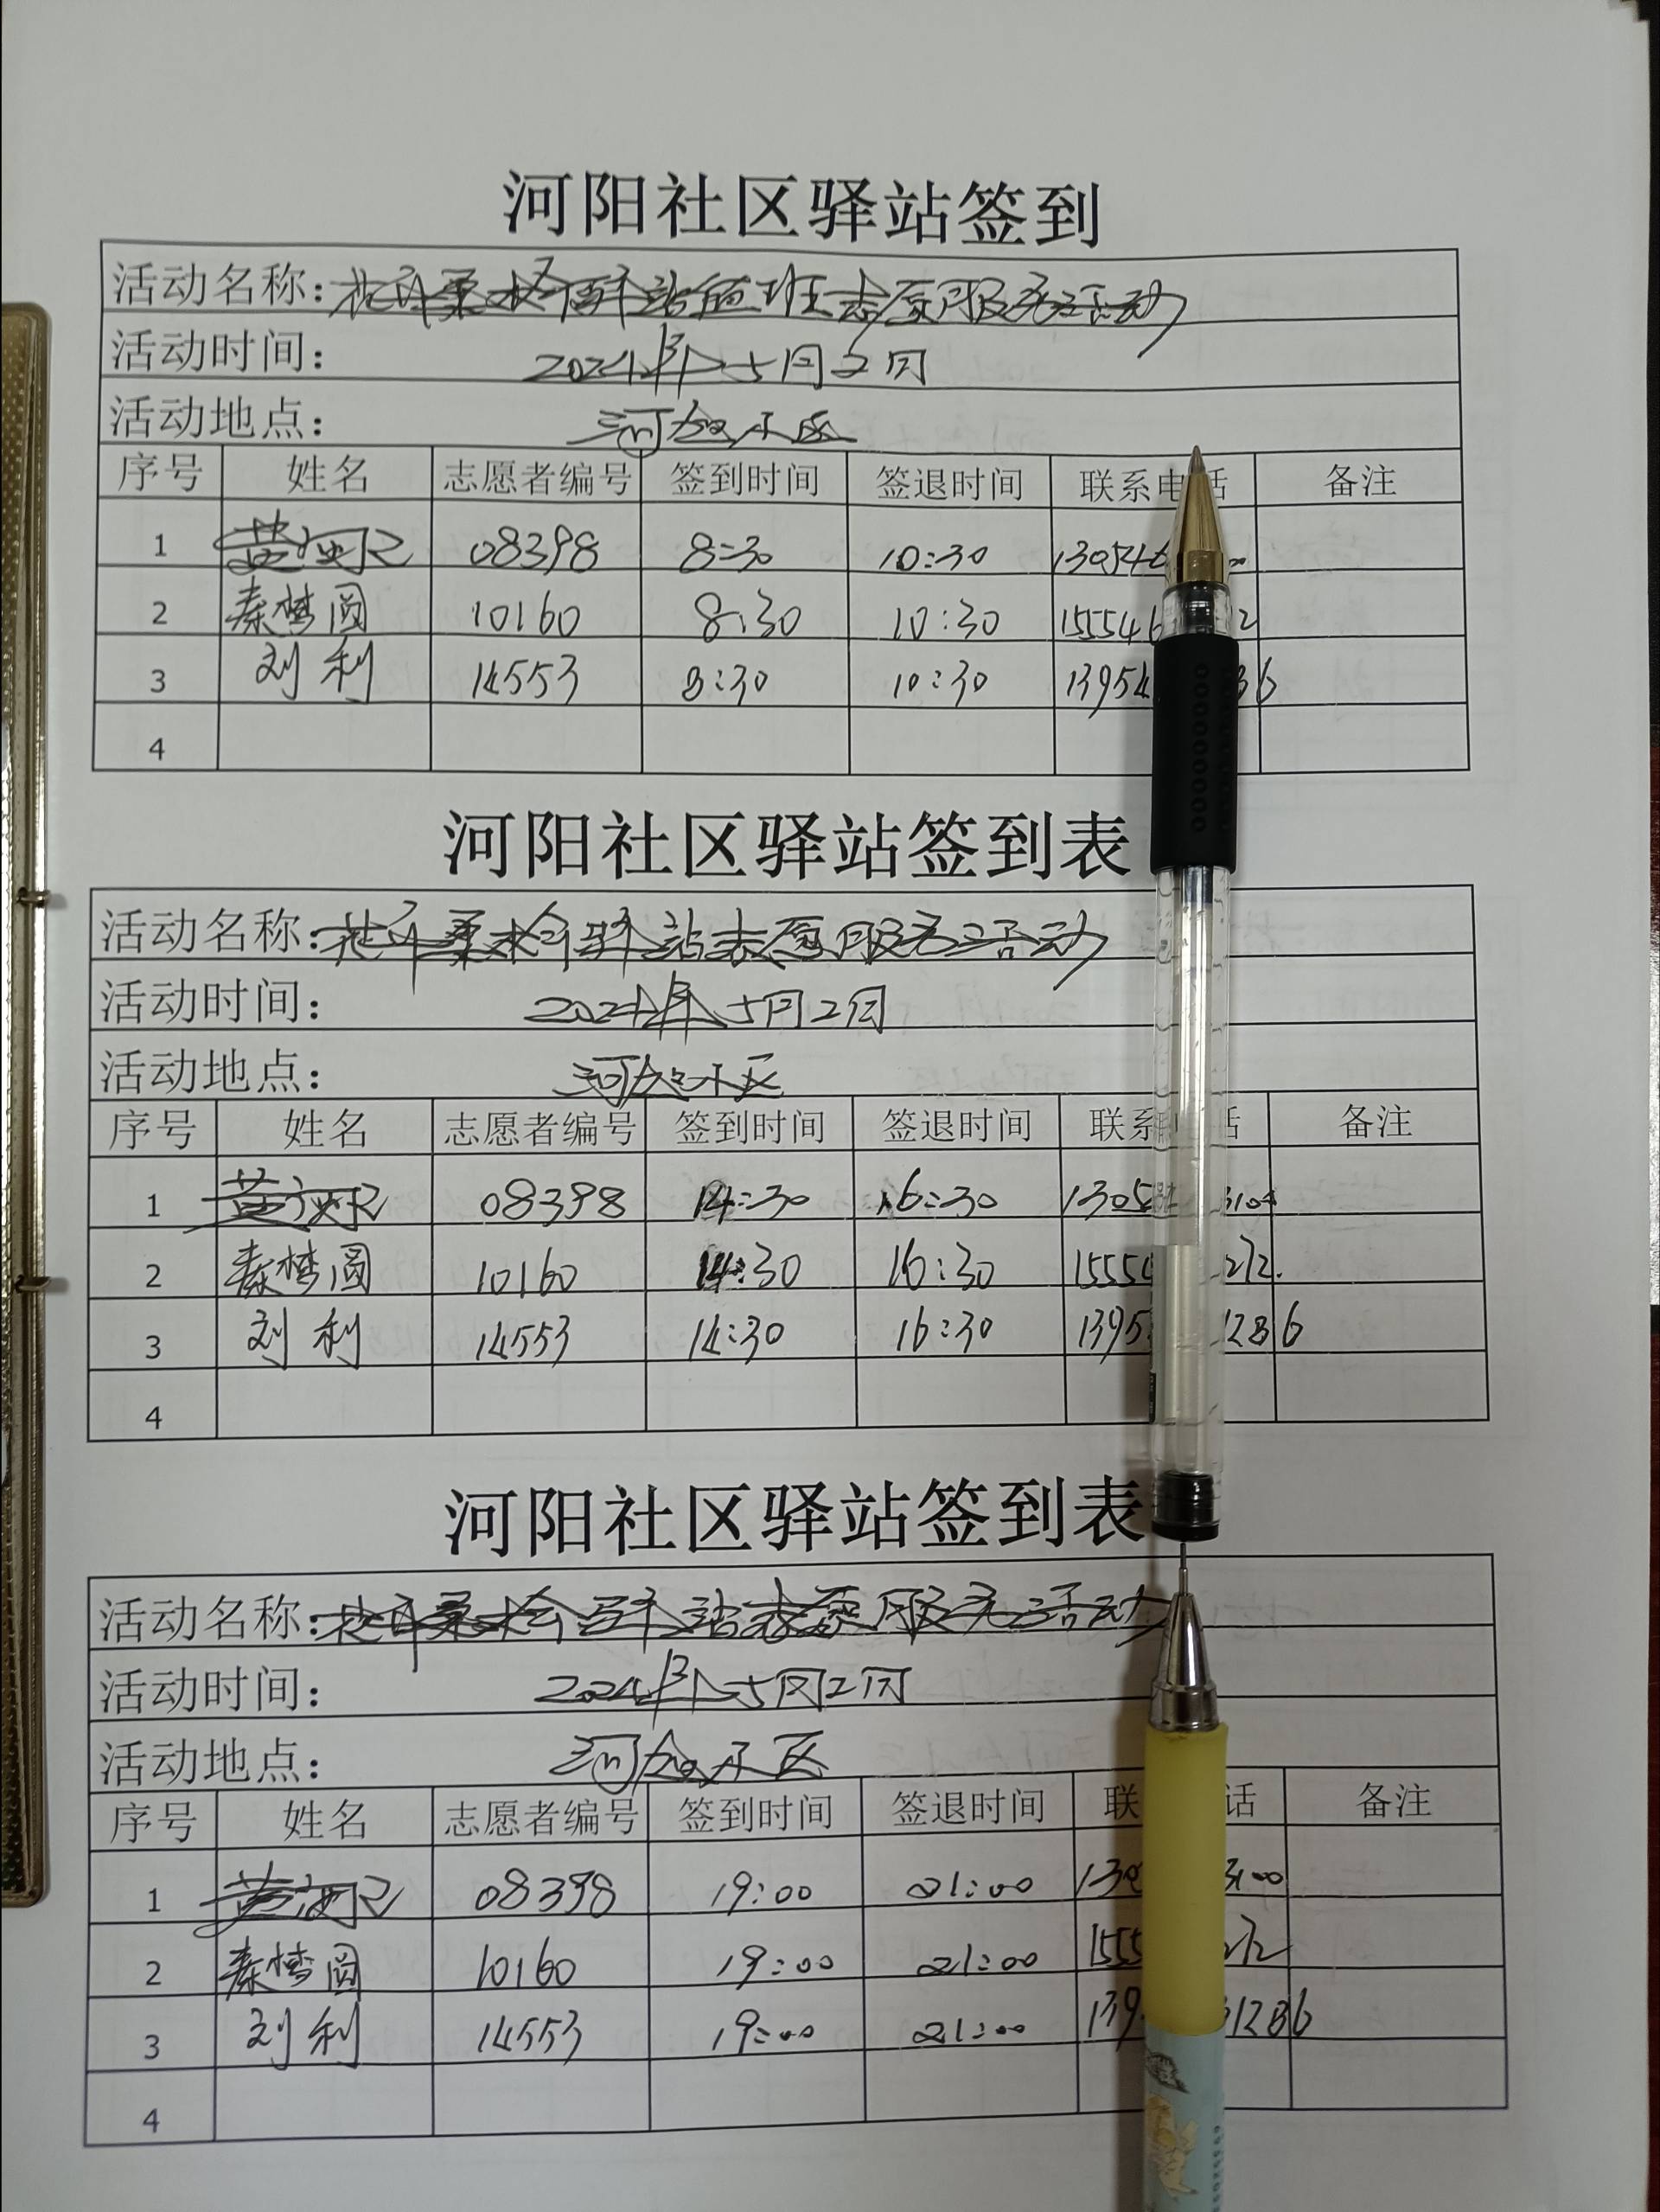 河阳社区驿站签到
活动名称：驿站值班志愿服务活动
活动时间： 2024年5月2日
活动地点： 小区
序号 姓名 志愿者编号 签到时间 签退时间 联系电话 备注
1 08398 8:30 10:30 130546
2 秦梦圆 10160 8:30 10:30 155546 2
3 刘利 14553 8:30 10:30 13954 86
4
河阳社区驿站签到表
活动名称：驿站志愿服务活动
活动时间： 2024年5月2日
活动地点： 小区
序号 姓名 志愿者编号 签到时间 签退时间 联系 话 备注
1 08398 14:30 16:30 1305
2 秦梦圆 10160 14:30 16:30 1555 212
3 刘利 14553 14:30 16:30 1395 1286
4
河阳社区驿站签到表
活动名称：驿站志愿服务活动
活动时间： 2024年5月2日
活动地点： 小区
序号 姓名 志愿者编号 签到时间 签退时间 联 话 备注
1 08398 19:00 21:00 130 3100
2 秦梦圆 10160 19:00 21:00 1555 212
3 刘利 14553 19:00 21:00 139 31286
4